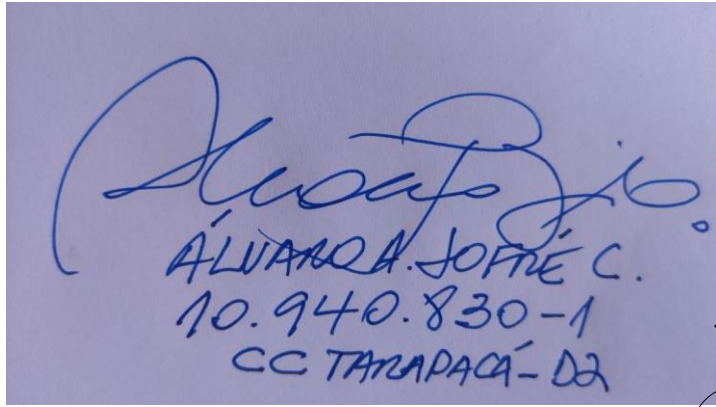 ÁLVARO A. JOFRÉ C.
10.940.830-1
CC TARAPACÁ-D2